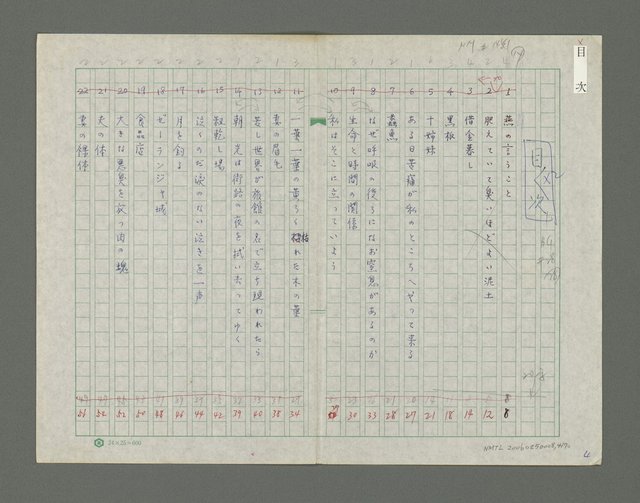 目次
目次
1 燕の言うこと 8
2 肥えていて臭いほどよい泥土 12
3 借金暮し 14
4 黒板 18
5 十姉妹 21
6 ある日菩薩が私のところへやって来る 27
7 蠹魚 28
8 なぜ呼吸の後ろになお窒息があるのか 33
9 生命と時間の関係 30
10 私はそこに立っていよう
11 一葉一葉の黄ろく枯れた木の葉 34
12 妻の眉毛 38
13 若し世界が旅館の名で立ち現われたら 40
14 朝の光は街路の夜を拭い去ってゆく 39
15 穀乾し場 42
16 泣くのだ涙のない泣きを一声 44
17 月を釣る 46
18 ゼーランジャ城 48
19 食品店 50
20 大きな悪臭を放つ肉の塊 52
21 夫の体 52
22 妻の裸体 56
24×25=600
NMTL 20060250008
4